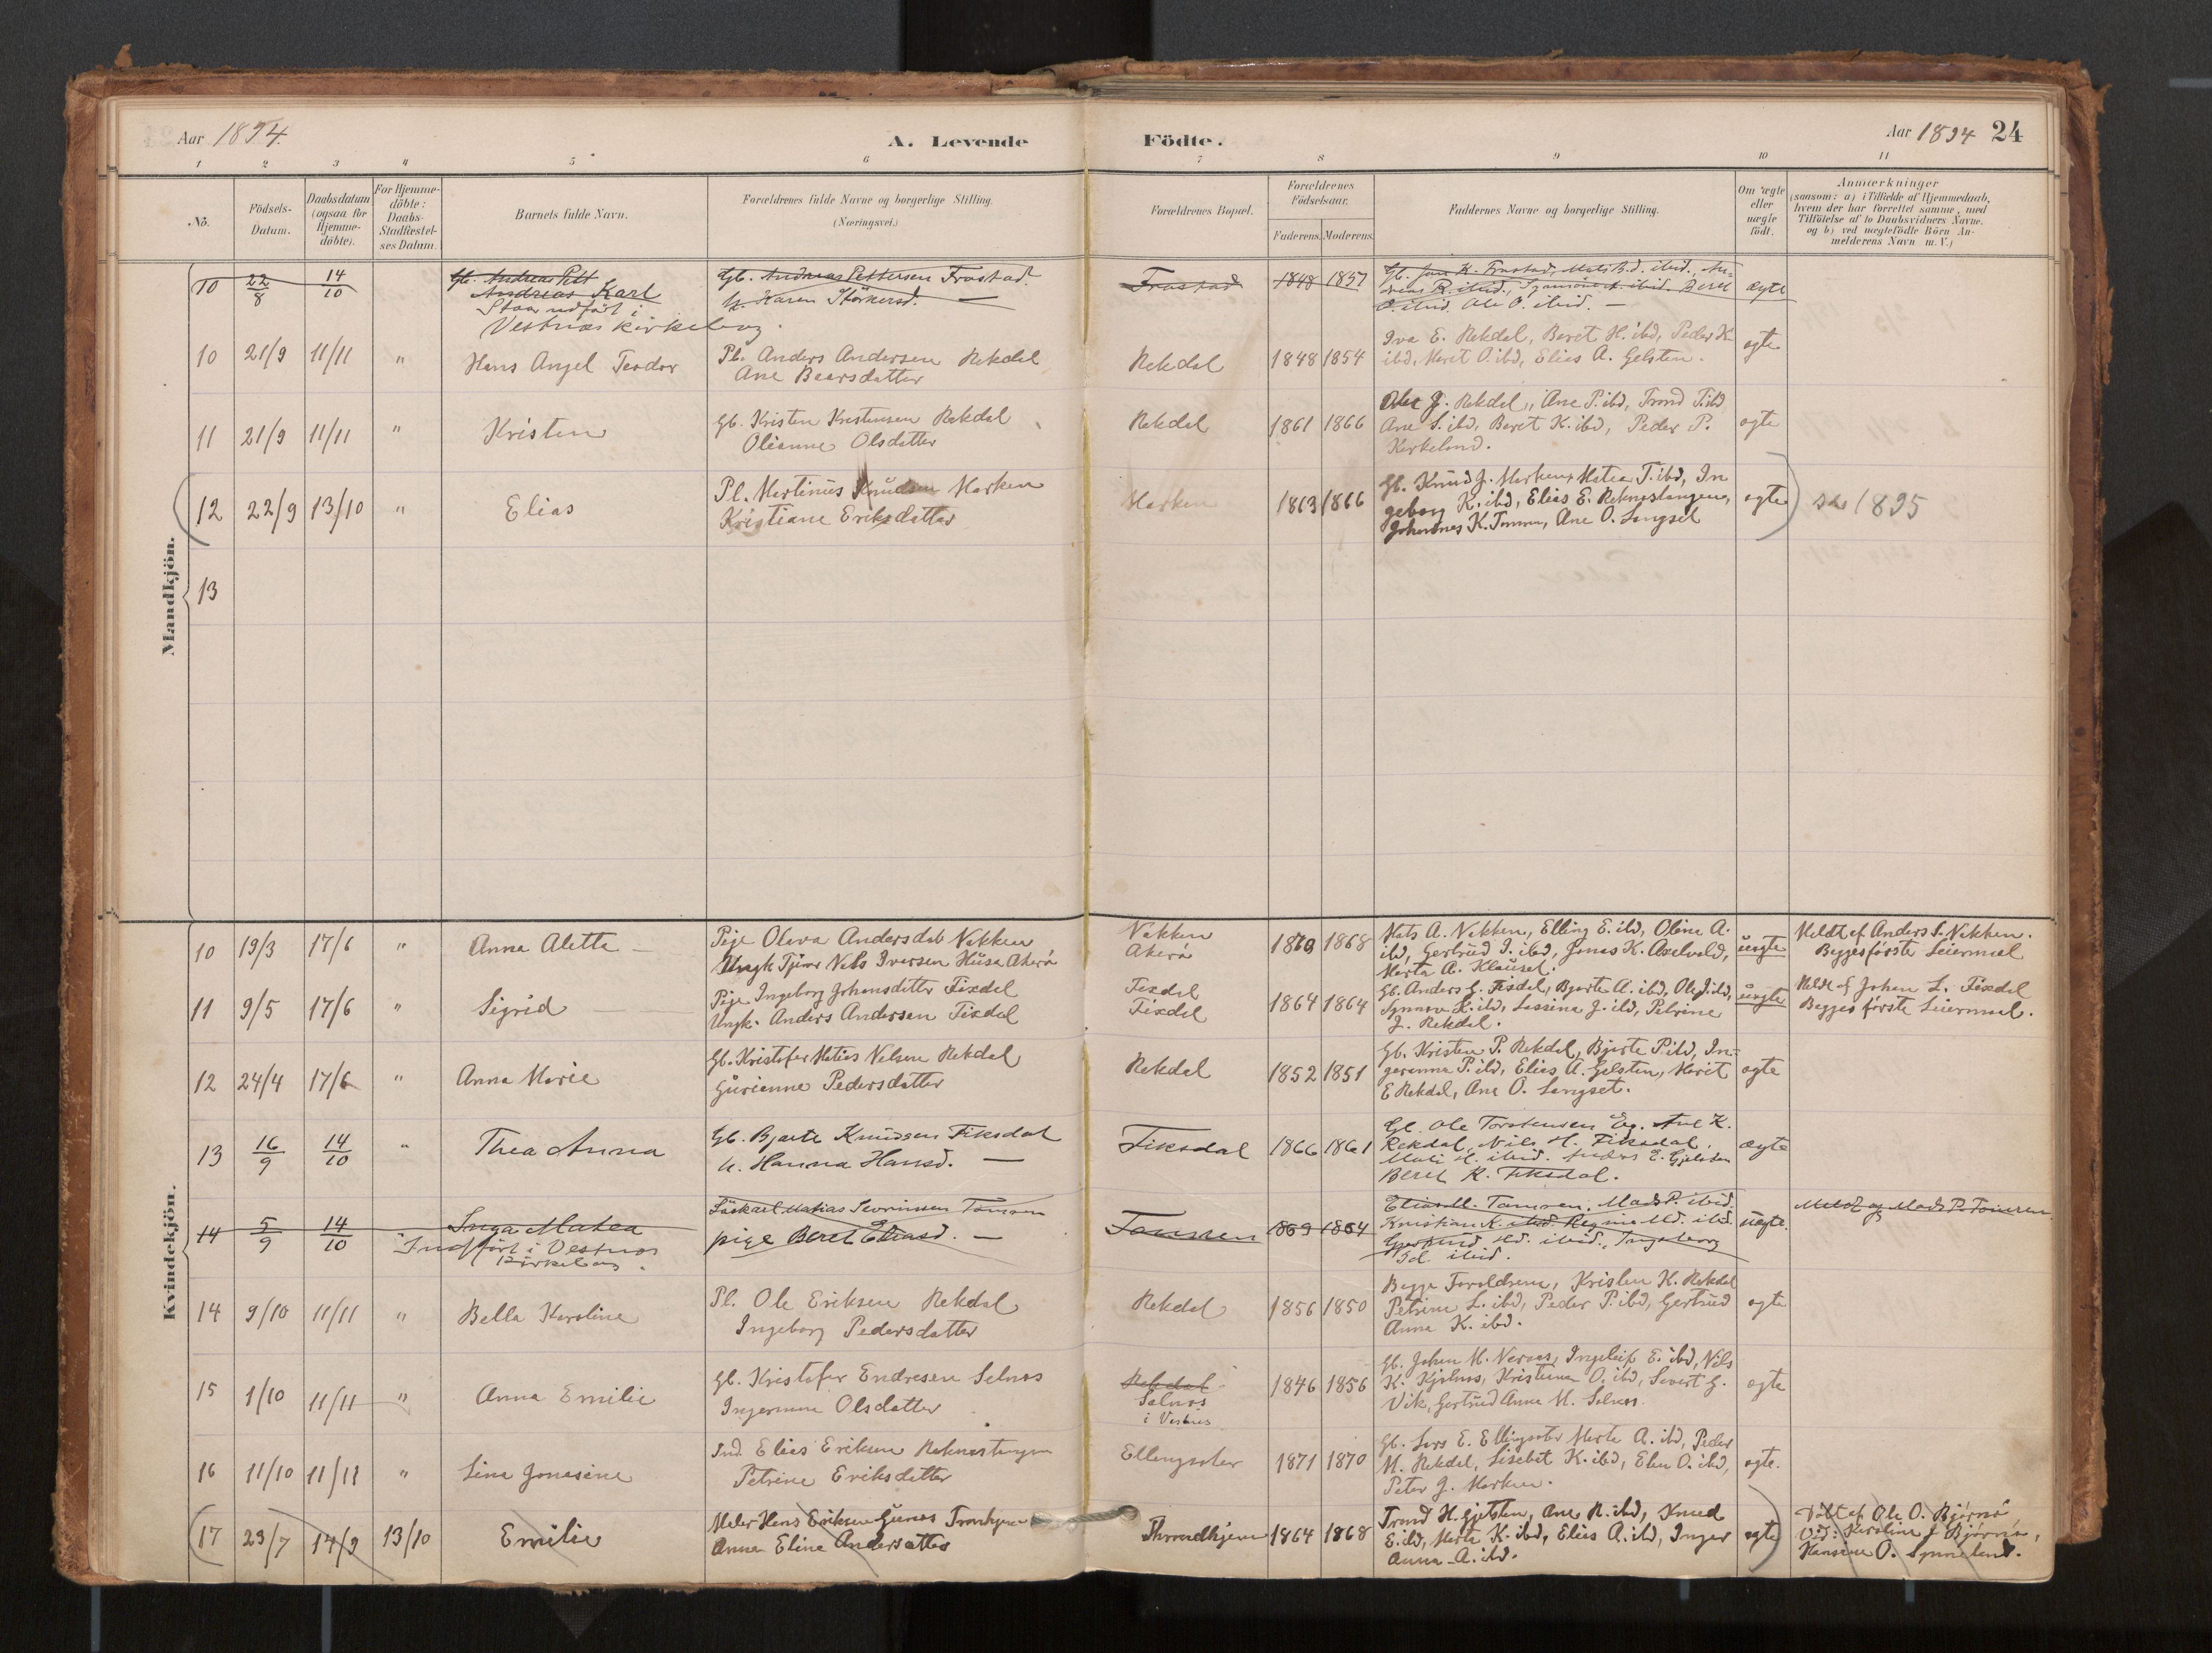 Aar 1894.
A. Levende Födte.
Aar 1894 24
1 2 3 4 5 6 7 8 9 10 11
No.
Födsels-Datum.
Daabsdatum (ogsaa for Hjemme-döbte).
For Hjemme-döbte: Daabs-Stadfæstel-ses Datum.
Barnets fulde Navn.
Forældrenes fulde Navne og borgerlige Stilling. (Næringsvei.)
Forældrenes Bopæl.
Forældrenes Födselsaar.
Faderens. Moderens.
Faddernes Navne og borgerlige Stilling.
Om ægte eller uægte födt.
Anmærkninger (saasom: a) i Tilfælde af Hjemmedaab, hvem der har forrettet samme, med Tilföielse af to Daabsvidners Navne. og b) ved uægtefödte Börn An-melderens Navn m. V.)
Mandkjön.
10 22/8 14/10
Gb. Andreas Pett
Andreas Karl
Staar udført i
Vestnæs kirkebog.
Gb. Andreas Pettersen Frostad.
h. Karen Störkersd. —
Frostad 1848 1857
ægte
10 21/9 11/11 "
Hans Angel Teodor
Pl. Anders Andersen Rekdal
Ane Baarsdatter
Rekdal 1848 1854
Iva E. Rekdal, Beret H. ibd, Peder K.
ibd, Meret O. ibd, Elias A. Gelsten.
egte
11 21/9 11/11 "
Kristen
Gb. Kristen Kristensen Rekdal
Olianne Olsdatter
Rekdal 1861 1866
J. Rekdal, Ane P. ibd, Trond P. ibd
Ane S. ibd, Beret K. ibd, Peder P.
egte
12 22/9 13/10 "
Elias
Pl. Martinus Knudsen Marken
Kristiane Eriksdatter
Marken 1863 1866
Gb. Knud J. Marken, Matea T. ibd, In
geborg K. ibd, Elias E. Reknestangen,
Johannes K. Tomren, Ane O. Langset
egte
1895
13
Kvindekjön.
10 19/3 17/6 "
Anna Aletta
Pige Olava Andersdat Nakken
Ungk. Tjener Nils Iversen Husa Akerø
Nakken
Akerø
1869 1868
Mats A. Nakken, Elling E. ibd, Oline A.
ibd, Gertrud I. ibd, Jonas K. Axelvold,
Marta A. Klauset.
uegte
Meldt af Anders S. Nakken.
Begges første Leiermaal
11 9/5 17/6 "
Sigrid
Pige Ingeborg Johansdatter Fixdal
Ungk. Anders Andersen Fixdal
Fixdal
Fixdal
1864 1864
Gb. Anders G. Fixdal, Bjarte A. ibd, Ole J. ibd,
Synnøve K. ibd, Lassina J. ibd, Petrine
J. Rekdal.
uegte
Meldt af Johan L. Fixdal
Begges første Leiermaal.
12 24/4 17/6 "
Anna Marie
Gb. Kristofer Matias Nelsen Rekdal
Gurianne Pedersdatter
Rekdal 1852 1851
Gb. Kristen P. Rekdal, Bjarte P. ibd, In-
geranna P. ibd, Elias A. Gelsten, Marit
E Rekdal, Ane O. Langset.
egte
13 16/9 14/10 "
Thea Anna
Gb. Bjarte Knudsen Fiksdal
h. Hanna Hansd. —
Fiksdal 1866 1861
Gb. Ole Torstensen Eg. Ane K.
Rekdal, Nils H. Fiksdal.
Mali H. ibid. Anders E. Gjelsten
Beret K. Fiksdal.
ægte
14 5/9 14/10
Inga Matea
Indført i Vestnæs
Kirkebog.
Matias Severinsen Tomren
pige Beret Eliasd. —
Tomren 1869 1864
Elias M. Tomren. Mads P. ibid.
Kristian K. ibid. Regine Md. ibd.
Gjertrud Md. ibid., Ingeborg
Id. ibid.
uægte.
Meldt af Mads P. Tomren.
14 9/10 11/11 "
Bella Karoline
Pl. Ole Eriksen Rekdal
Ingeborg Pedersdatter
Rekdal 1856 1850
Begge Foreldrene, Kristen K. Rekdal
Petrine L. ibd, Peder P. ibd, Gertrud
Anna K. ibd.
egte
15 1/10 11/11 "
Anna Emilie
Gb. Kristofer Endresen Selnes
Ingeranna Olsdatter
Rekdal
Selnes
i Vestnes
1846 1856
Gb. Johan M. Neraas, Ingeleif E. ibd, Nils
K. Kjelnes, Kristianna O. ibd, Severt G.
Vik, Gertrud Anna M. Selnes.
egte
16 11/10 11/11 "
Lina Jonasine
Ind. Elias Eriksen Reknestangen
Petrine Eriksdatter
Ellingseter 1871 1870
Gb. Lars E. Ellingseter Marta A. ibd, Peder
M. Rekdal, Lisebet K. ibd, Elen O. ibd,
Peter J. Marken.
egte.
17 23/7 14/9 13/10
Emilie
Maler Hans Eriksen Trondhjem
Anna Elina Andersdatter
Throndhjem 1864 1868
Trond H. Gjelsten, Ane R. ibd, Knud
E. ibd, Marta K. ibd, Elias A. ibd, Inger
Anna A. ibd.
egte
Døbt af Ole O. Bjørnø
Vid: Karoline J Bjørnø,
Hansine O. Synneland.